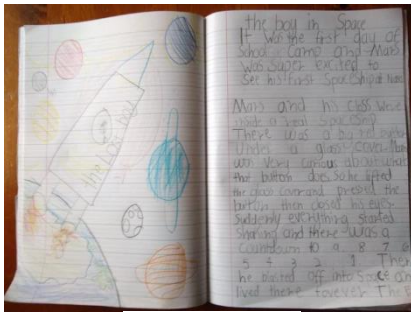 the boy in Space
It was the first day of
School Camp and Mars
was super excited to
See his first Space Ship
Mars and his class were
inside a real Space Ship
There was a big red button
Under a glass cover. Mars
was very curious about what
that button does so he lifted
the glass cover and pressed the
button, then closed his eyes.
Suddenly everything started
shaking and there was a
countdown 10 9 8 7 6
5 4 3 2 1 Then
he blasted off into Space and
lived there forever. The
the lost boy